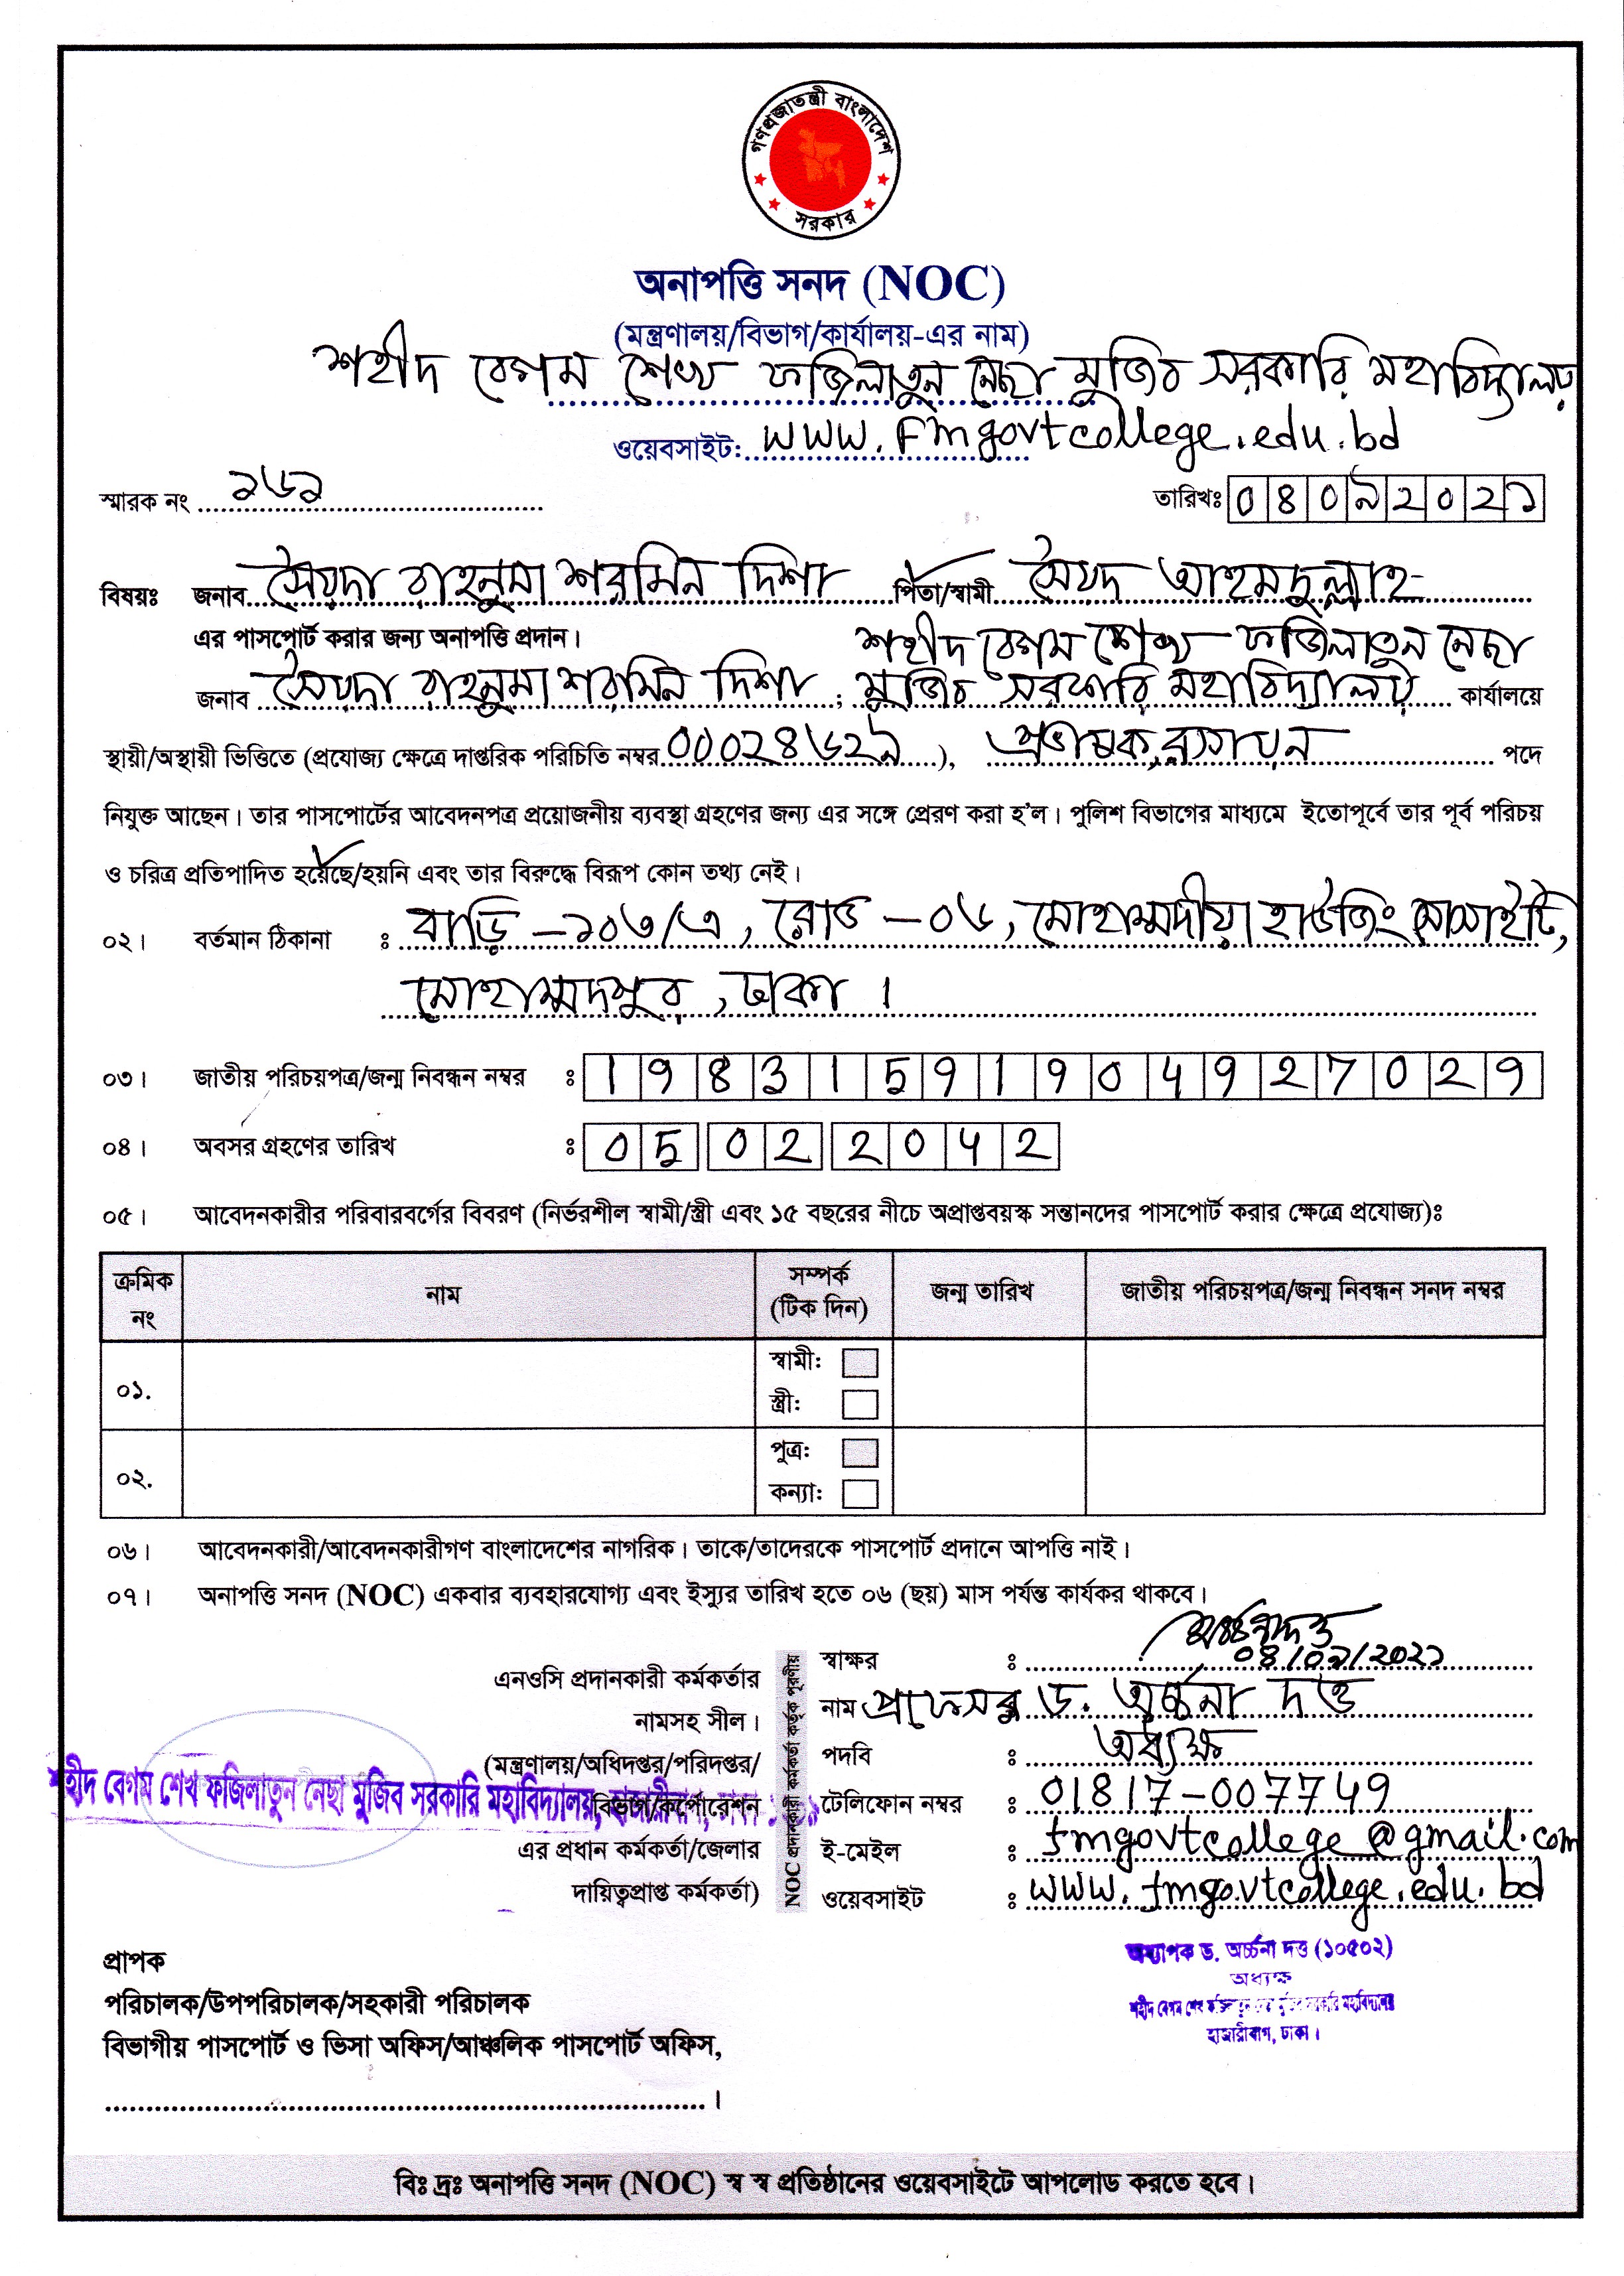 গণপ্রজাতন্ত্রী বাংলাদেশ
সরকার
অনাপত্তি সনদ (NOC)
(মন্ত্রণালয়/বিভাগ/কার্যালয়-এর নাম)
শহীদ বেগম শেখ ফজিলাতুন নেছা মুজিব সরকারি মহাবিদ্যালয়
ওয়েবসাইট: www.fmgovtcollege.edu.bd
স্মারক নং ১৬১
তারিখঃ ০৪০৯২০২১
বিষয়ঃ জনাব সৈয়দা রাহনুমা শরমিন দিশা পিতা/স্বামী সৈয়দ আহমদুল্লাহ
এর পাসপোর্ট করার জন্য অনাপত্তি প্রদান।
শহীদ বেগম শেখ ফজিলাতুন নেছা
জনাব সৈয়দা রাহনুমা শরমিন দিশা, মুজিব সরকারি মহাবিদ্যালয় কার্যালয়ে
স্থায়ী/অস্থায়ী ভিত্তিতে (প্রযোজ্য ক্ষেত্রে দাপ্তরিক পরিচিতি নম্বর ০০০২৪৬২৯), প্রভাষক, রসায়ন পদে
নিযুক্ত আছেন। তার পাসপোর্টের আবেদনপত্র প্রয়োজনীয় ব্যবস্থা গ্রহণের জন্য এর সঙ্গে প্রেরণ করা হ'ল। পুলিশ বিভাগের মাধ্যমে ইতোপূর্বে তার পূর্ব পরিচয়
ও চরিত্র প্রতিপাদিত হয়েছে/হয়নি এবং তার বিরুদ্ধে বিরূপ কোন তথ্য নেই।
০২। বর্তমান ঠিকানা ঃ বাড়ি -১০৩/এ, রোড -০৬, মোহাম্মদীয়া হাউজিং সোসাইটি,
মোহাম্মদপুর, ঢাকা।
০৩। জাতীয় পরিচয়পত্র/জন্ম নিবন্ধন নম্বর ঃ 19831591904927029
০৪। অবসর গ্রহণের তারিখ ঃ 05 02 2042
০৫। আবেদনকারীর পরিবারবর্গের বিবরণ (নির্ভরশীল স্বামী/স্ত্রী এবং ১৫ বছরের নীচে অপ্রাপ্তবয়স্ক সন্তানদের পাসপোর্ট করার ক্ষেত্রে প্রযোজ্য)ঃ
ক্রমিক নং নাম সম্পর্ক (টিক দিন) জন্ম তারিখ জাতীয় পরিচয়পত্র/জন্ম নিবন্ধন সনদ নম্বর
০১. স্বামী:
স্ত্রী:
০২. পুত্র:
কন্যা:
০৬। আবেদনকারী/আবেদনকারীগণ বাংলাদেশের নাগরিক। তাকে/তাদেরকে পাসপোর্ট প্রদানে আপত্তি নাই।
০৭। অনাপত্তি সনদ (NOC) একবার ব্যবহারযোগ্য এবং ইস্যুর তারিখ হতে ০৬ (ছয়) মাস পর্যন্ত কার্যকর থাকবে।
এনওসি প্রদানকারী কর্মকর্তার
নামসহ সীল।
(মন্ত্রণালয়/অধিদপ্তর/পরিদপ্তর/
বিভাগ/কর্পোরেশন
এর প্রধান কর্মকর্তা/জেলার
দায়িত্বপ্রাপ্ত কর্মকর্তা)
শহীদ বেগম শেখ ফজিলাতুন নেছা মুজিব সরকারি মহাবিদ্যালয়, হাজারীবাগ,
NOC প্রদানকারী কর্মকর্তা কর্তৃক পূরণীয়
স্বাক্ষর ঃ অর্চ্চনা দত্ত
০৪/০৯/২০২১
নাম প্রফেসর ড. অর্চ্চনা দত্ত
পদবি ঃ অধ্যক্ষ
টেলিফোন নম্বর ঃ 01817-007749
ই-মেইল ঃ fmgovtcollege@gmail.com
ওয়েবসাইট ঃ www.fmgovtcollege.edu.bd
অধ্যাপক ড. অর্চ্চনা দত্ত (১০৫০২)
অধ্যক্ষ
শহীদ বেগম শেখ ফজিলাতুন নেছা মুজিব সরকারি মহাবিদ্যালয়
হাজারীবাগ, ঢাকা।
প্রাপক
পরিচালক/উপপরিচালক/সহকারী পরিচালক
বিভাগীয় পাসপোর্ট ও ভিসা অফিস/আঞ্চলিক পাসপোর্ট অফিস,
বিঃ দ্রঃ অনাপত্তি সনদ (NOC) স্ব স্ব প্রতিষ্ঠানের ওয়েবসাইটে আপলোড করতে হবে।